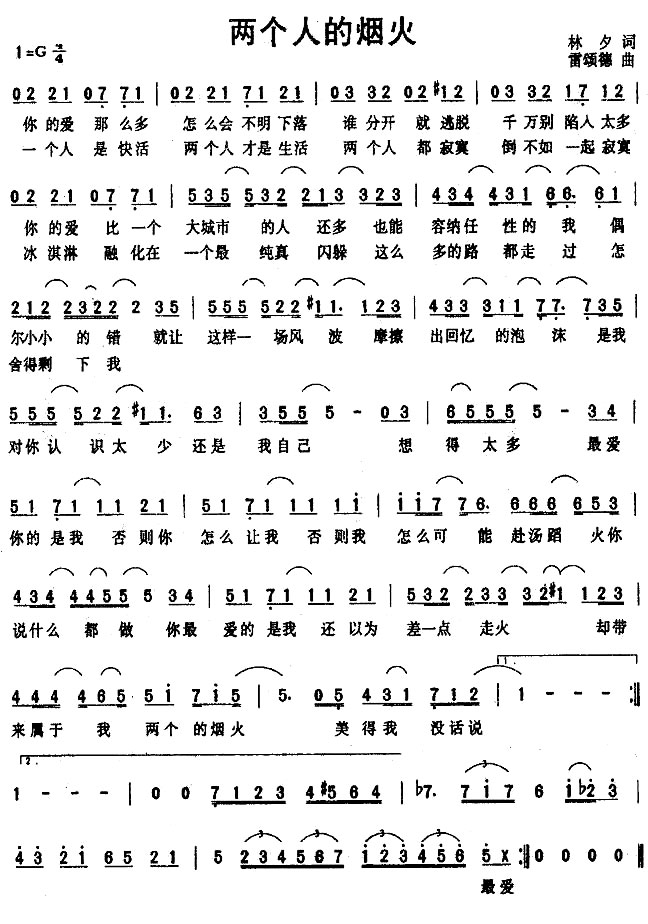 两个人的烟火
1=G 4/4
林夕词
雷颂德 曲
02 21 07 71 | 02 21 07 71 | 03 32 02 #12 | 03 32 17 12 |
你的爱 那么多 怎么会 不明下落 谁分开 就逃脱 千万别 陷入太多
一个人 是快活 两个人 才是生活 两个人 都寂寞 倒不如 一起寂寞
02 21 07 71 | 535 532 213 323 | 434 431 66. 61 |
你的爱 比一个 大城市 的人 还多 也能 容纳任 性的 我 偶
冰淇淋 融化在 一个最 纯真 闪躲 这么 多的路 都走 过 怎
212 2322 2 35 | 555 522 #11. 123 | 433 311 77. 735 |
尔小小 的错 就让 这样一 场风 波 摩擦 出回忆 的泡 沫 是我
舍得剩 下我
555 522 #11. 63 | 355 5 - 03 | 6555 5 - 34 |
对你认 识太 少 还是 我自己 想 得太多 最爱
51 71 11 21 | 51 71 11 1i | ii7 76. 666 653 |
你的是我 否则你 怎么让我 否则我 怎么可 能 赴汤蹈 火你
434 4455 5 34 | 51 71 11 21 | 532 233 32#1 123 |
说什么 都做 你最 爱的是我 还以为 差一点 走火 却带
444 465 5i 7i5 | 5. 05 431 712 | 1 - - - :||
来属于 我 两个 的烟火 美得我 没话说
1 - - - | 0 0 7123 4#564 | b7. 7i7 6 ib23 |
43 21 65 21 | 5 234567 123456 5X :|| 0 0 0 0 ||
最爱